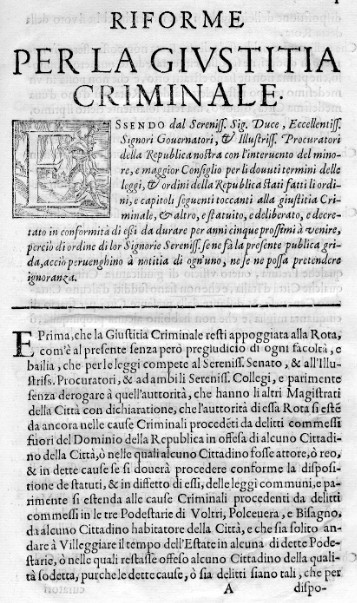 RIFORME
PER LA GIVSTITIA
CRIMINALE.
ESSENDO dal Sereniss. Sig. Duce, Eccellentiss.
Signori Gouernatori, & Illustriss. Procuratori
della Republica nostra con l'interuento del mino-
re, e maggior Consiglio per li douuti termini delle
leggi, & ordini della Republica stati fatti li ordi-
ni, e capitoli seguenti toccanti alla giustitia Cri-
minale, & altro, e statuito, e deliberato, e decre-
tato in conformità di essi da durare per anni cinque prossimi à venire,
perciò di ordine di lor Signorie Sereniss. se ne fà la presente publica gri-
da, acciò peruenghino à notitia di ogn'uno, ne se ne possa pretendere
ignoranza.
E Prima, che la Giustitia Criminale resti appoggiata alla Rota,
com'è al presente senza però pregiudicio di ogni facoltà, e
bailia, che per le leggi compete al Sereniss. Senato, & all'Illu-
striss. Procuratori, & ad ambi li Sereniss. Collegi, e parimente
senza derogare à quell'auttorità, che hanno li altri Magistrati
della Città con dichiaratione, che l'auttorità di essa Rota si estẽ
da ancora nelle cause Criminali procedẽti da delitti commessi
fuori del Dominio della Republica in offesa di alcuno Cittadi-
no della Città, ò nelle quali alcuno Cittadino fosse attore, ò reo,
& in dette cause se si douerà procedere conforme la disposi-
tione de statuti, & in diffetto di essi, delle leggi communi, e pa-
rimente si estenda alle cause Criminali procedenti da delitti
commessi in le tre Podestarie di Voltri, Polceuera, e Bisagno,
da alcuno Cittadino habitatore della Città, e che sia solito an-
dare à Villeggiare il tempo dell'Estate in alcuna di dette Pode-
starie, ò nelle quali restasse offeso alcuno Cittadino della quali-
tà sodetta, purche le dette cause, ò sia delitti siano tali, che per
A dispo-